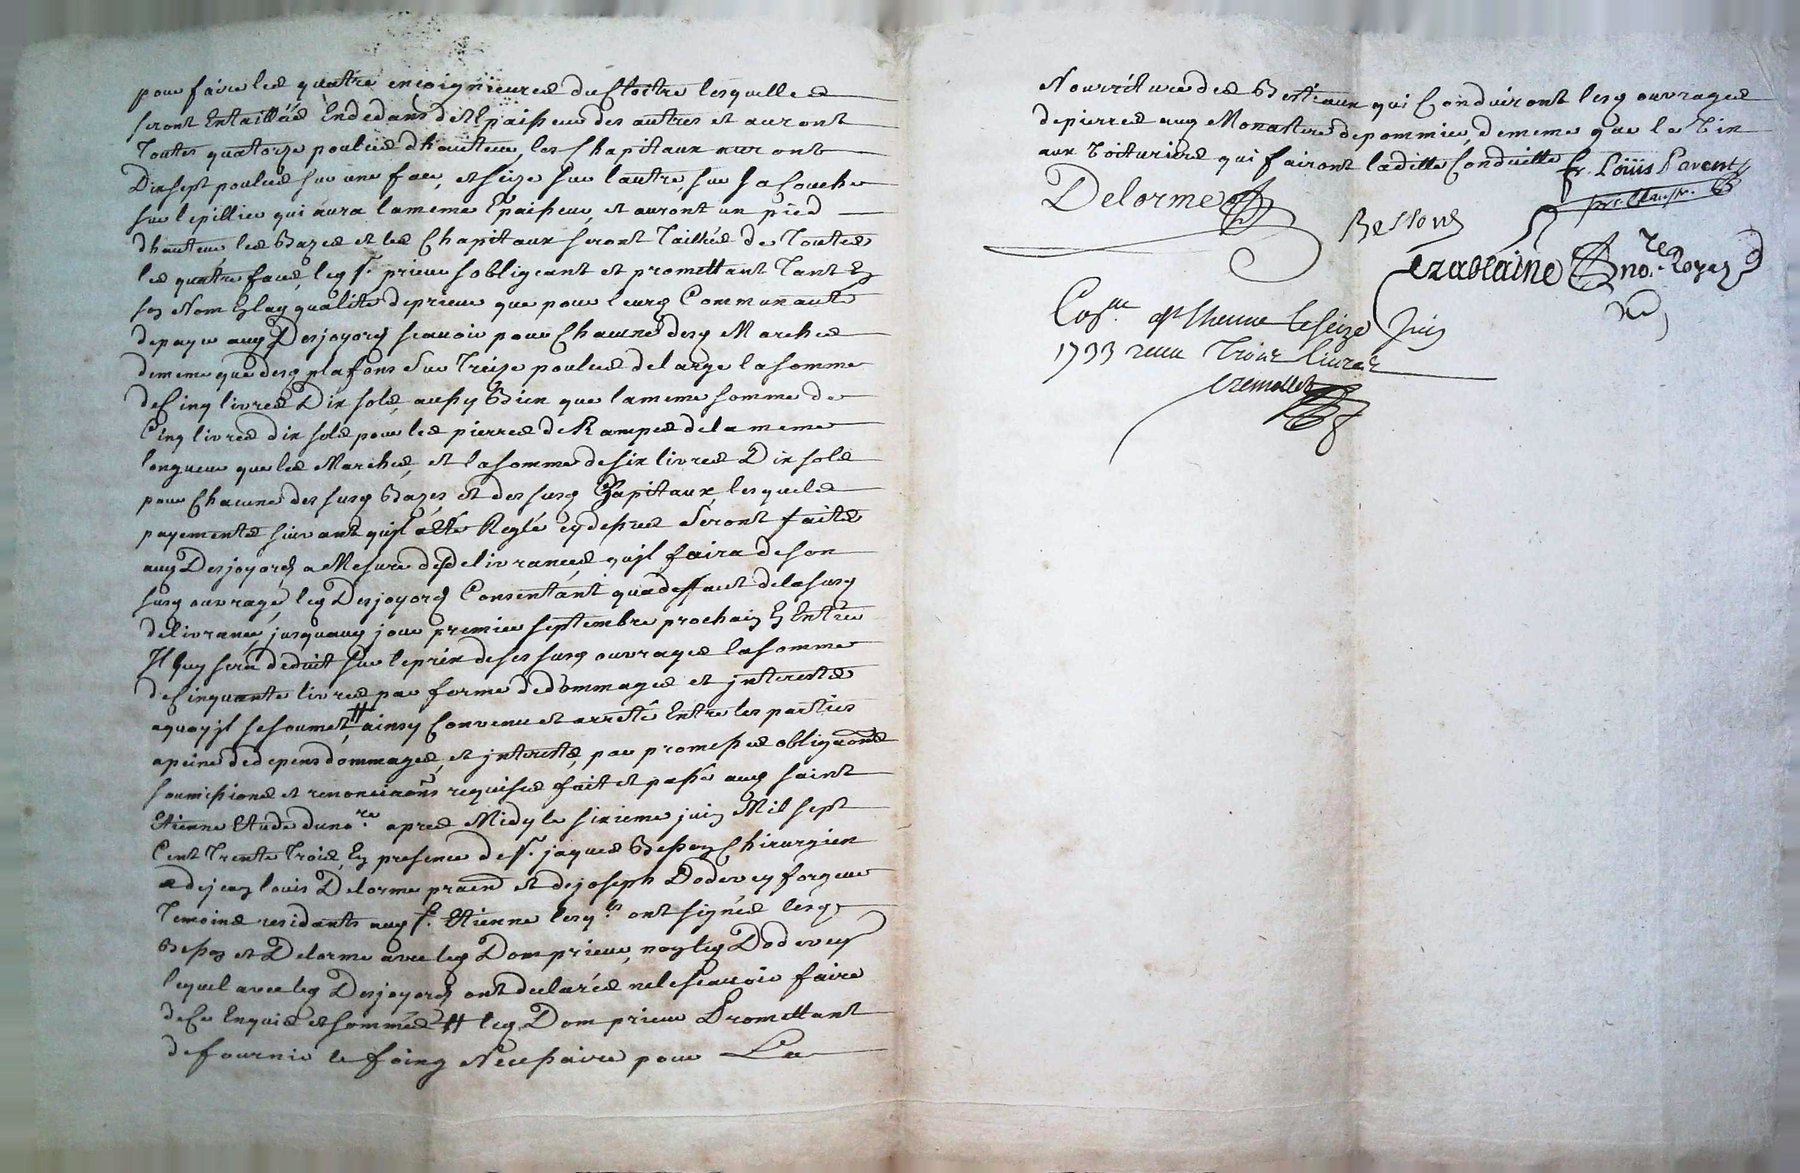 pour faire les quatre encoignieures du Cloitre lesquelles
seront Entaillées Endedans de lEpaisseur des autres et auront
Toutes quatorze poulces dhauteur, les Chapitaux auront
Dixsept poulces sur une face, et seize sur lautre, sur sa Couche
sur lepillier qui aura lameme Epaisseur, et auront un pied
dhauteur les Bazes et les Chapitaux seront Taillés de Toutes
les quatre faces, leq sr. prieur sobligeant et promettant Tant En
son Nom Enlaq qualité deprieur que pour leurq Communauté
depayer auq Desjoyaux scavoir pour Chacune desq Marches
dememe que desq plafons sur Treize poulces delarge lasomme
deCinq livres Dix sols, aussy Bien que lameme somme de
Cinq livres dix sols pour les pierres de Rampes delameme
longueur que les Marches, et lasomme desix livres Dix sols
pour Chacune des susq Bazes et des susq Chapitaux, lesquels
payements suivant quil a été Reglé cydessus seront faits
auq Desjoyaux a Mesure des delivrances quil faira deson
susq ouvrage, leq Desjoyaux Consentant quadeffaut delasusq
delivrance, jusquauq jour premier septembre prochain En Entier
Il luy sera deduit sur leprix deses susq ouvrages lasomme
deCinquante livres par forme dedommages et jnterests
aquoy jl sesoumet # ainsy Convenu et arreté Entre les parties
apeine dedepens dommages, et jnterests, par promesses obligaons
soumissions et renonciaons requises fait et passé auq saint
Etienne Etude duno.re apres Midy le sixieme juin Mil sept
Cent Trente Trois En presence de sr. jaques Besson Chirurgien
dejean louis Delorme prair et dejoseph Dodevey forgeur
Temoins residants auq st. Etienne lesq.ls ont signés lesq
Besson et Delorme avec leq Dom prieur, non leq Dodevey
lequel avec leq Desjoyaux ont declarés nelescavoir faire
dece Enquis et sommés # leq Dom prieur Promettant
defournir le foing Necessaire pour La
Nourriture des Bestiaux qui Conduiront lesq ouvrages
depierres auq Monastere depommier, dememe que le Vin
aux Voituriers qui fairont laditte Conduitte fr. Loüis Parent
Delorme
Besson
Ezablaine no.re Royal
Con.lle a st Etienne le seize Juin
1733 receu Trois livres